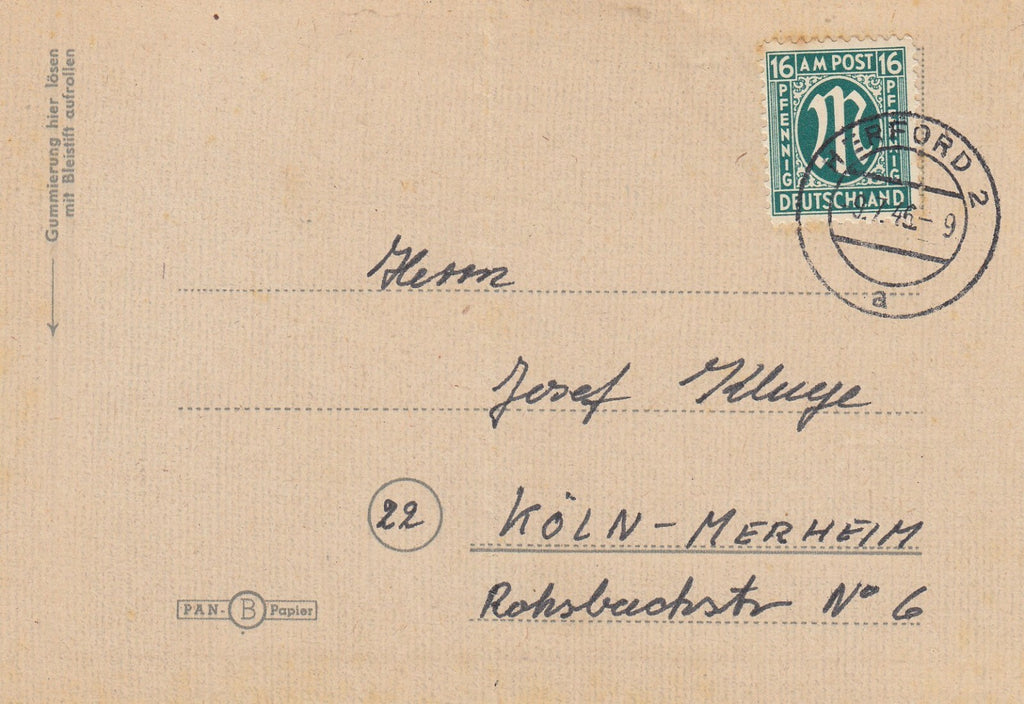 Gummierung hier lösen
mit Bleistift aufrollen
16 AM POST 16
PFENNIG
PFENNIG
DEUTSCHLAND
HERFORD 2
9.7.46.- 9
a
Herrn
Josef Kluge
22
KÖLN-MERHEIM
Rohsbachstr No 6
PAN- B Papier